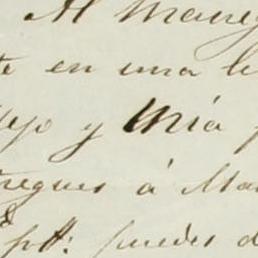 Al maneg
te en una le
tuyo y mia p
tregues á Man
Spt: puedes d